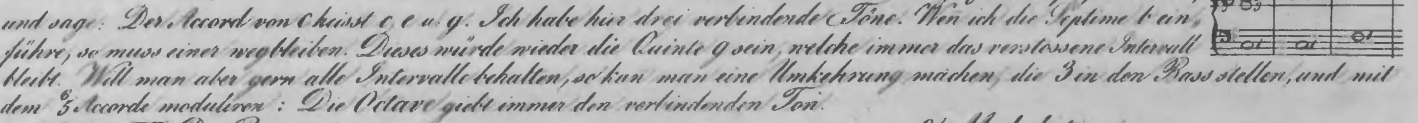 und sage: Der Accord von C heisst c, e u. g. Ich habe hier drei verbindende Töne. Wen ich die Septime b ein,
führe, so muss einer wegbleiben. Dieses würde wieder die Quinte g sein, welche immer das verstossene Intervall
bleibt. Will man aber gern alle Intervalle behalten, so kan man eine Umkehrung machen, die 3 in den Bass stellen, und mit
dem 6/5 Accorde moduliren: Die Octave giebt immer den verbindenden Ton.